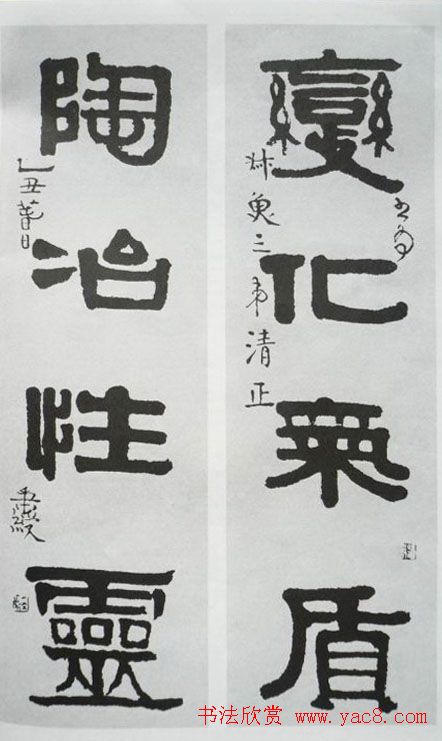 變化氣質
三弟清正
陶冶性靈
乙丑
秉綬
书法欣赏 www.yac8.com